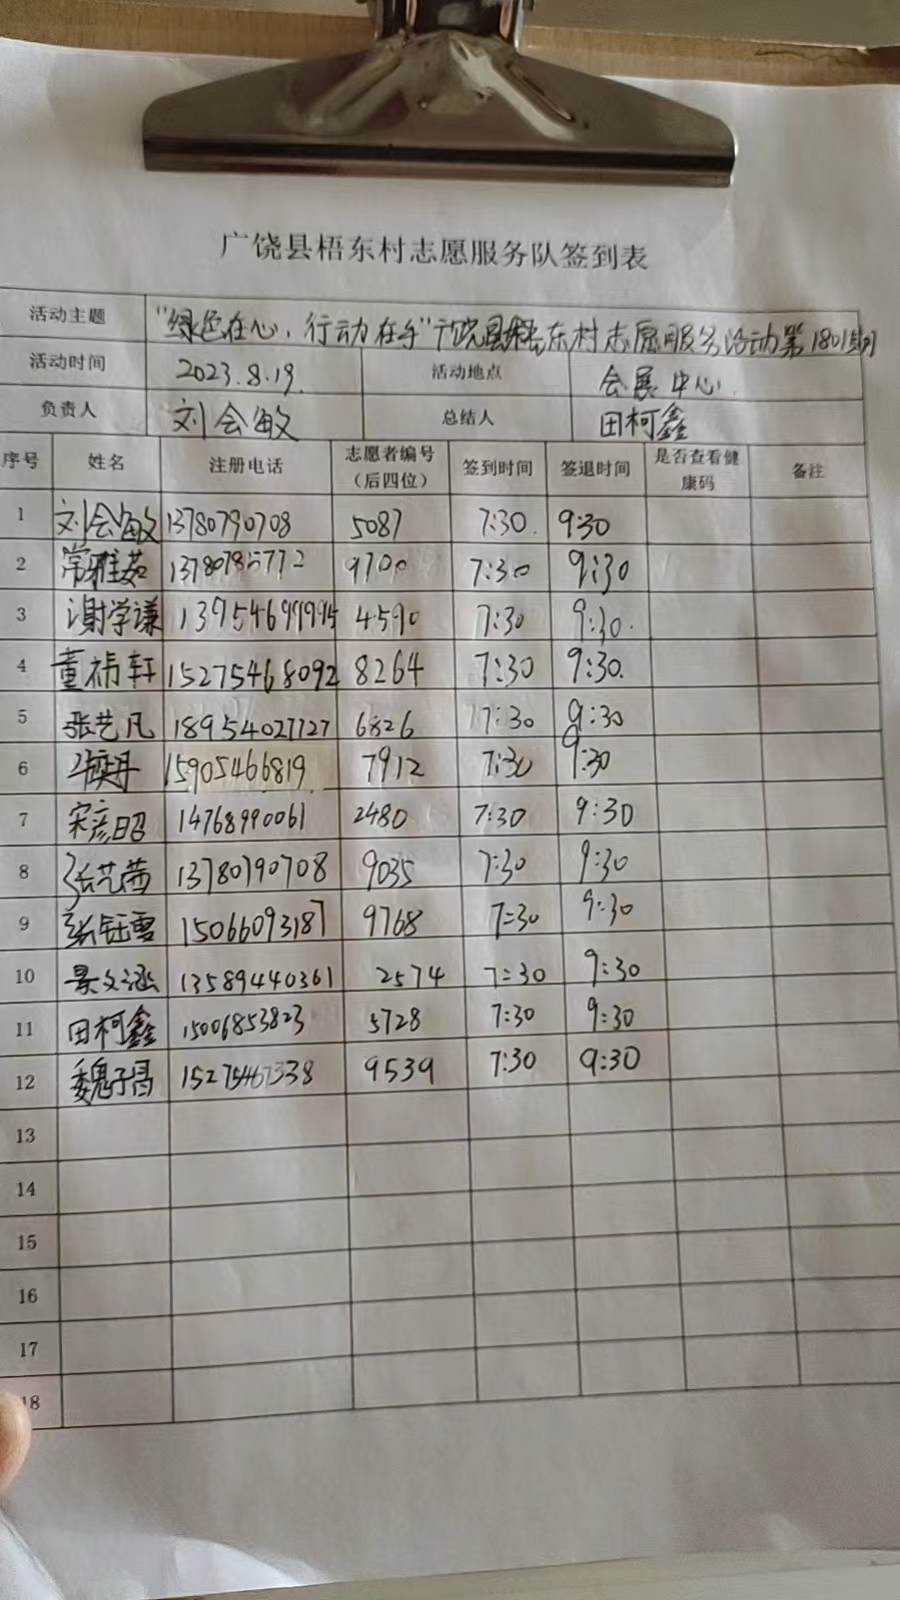 广饶县梧东村志愿服务队签到表
活动主题 "绿色在心，行动在手"广饶县梧东村志愿服务活动第1801期
活动时间 2023.8.19. 活动地点 会展中心
负责人 刘会敏 总结人 田柯鑫
序号 姓名 注册电话 志愿者编号（后四位） 签到时间 签退时间 是否查看健康码 备注
1 刘会敏 13780790708 5087 7:30. 9:30
2 常雅茹 13780785772 9700 7:30 9:30
3 谢学谦 13754699994 4590 7:30 9:30.
4 董祎轩 15275468092 8264 7:30 9:30.
5 张艺凡 18954027727 6826 7:30 9:30
6 15905466819 7912 7:30 9:30
7 宋彦昭 14768990061 2480 7:30 9:30
8 张艺茜 13780790708 9035 7:30 9:30
9 张钰雪 15066093187 9768 7:30 9:30
10 景文涵 13589440361 2574 7:30 9:30
11 田柯鑫 15006853823 5728 7:30 9:30
12 魏子昌 15275467338 9539 7:30 9:30
13
14
15
16
17
18